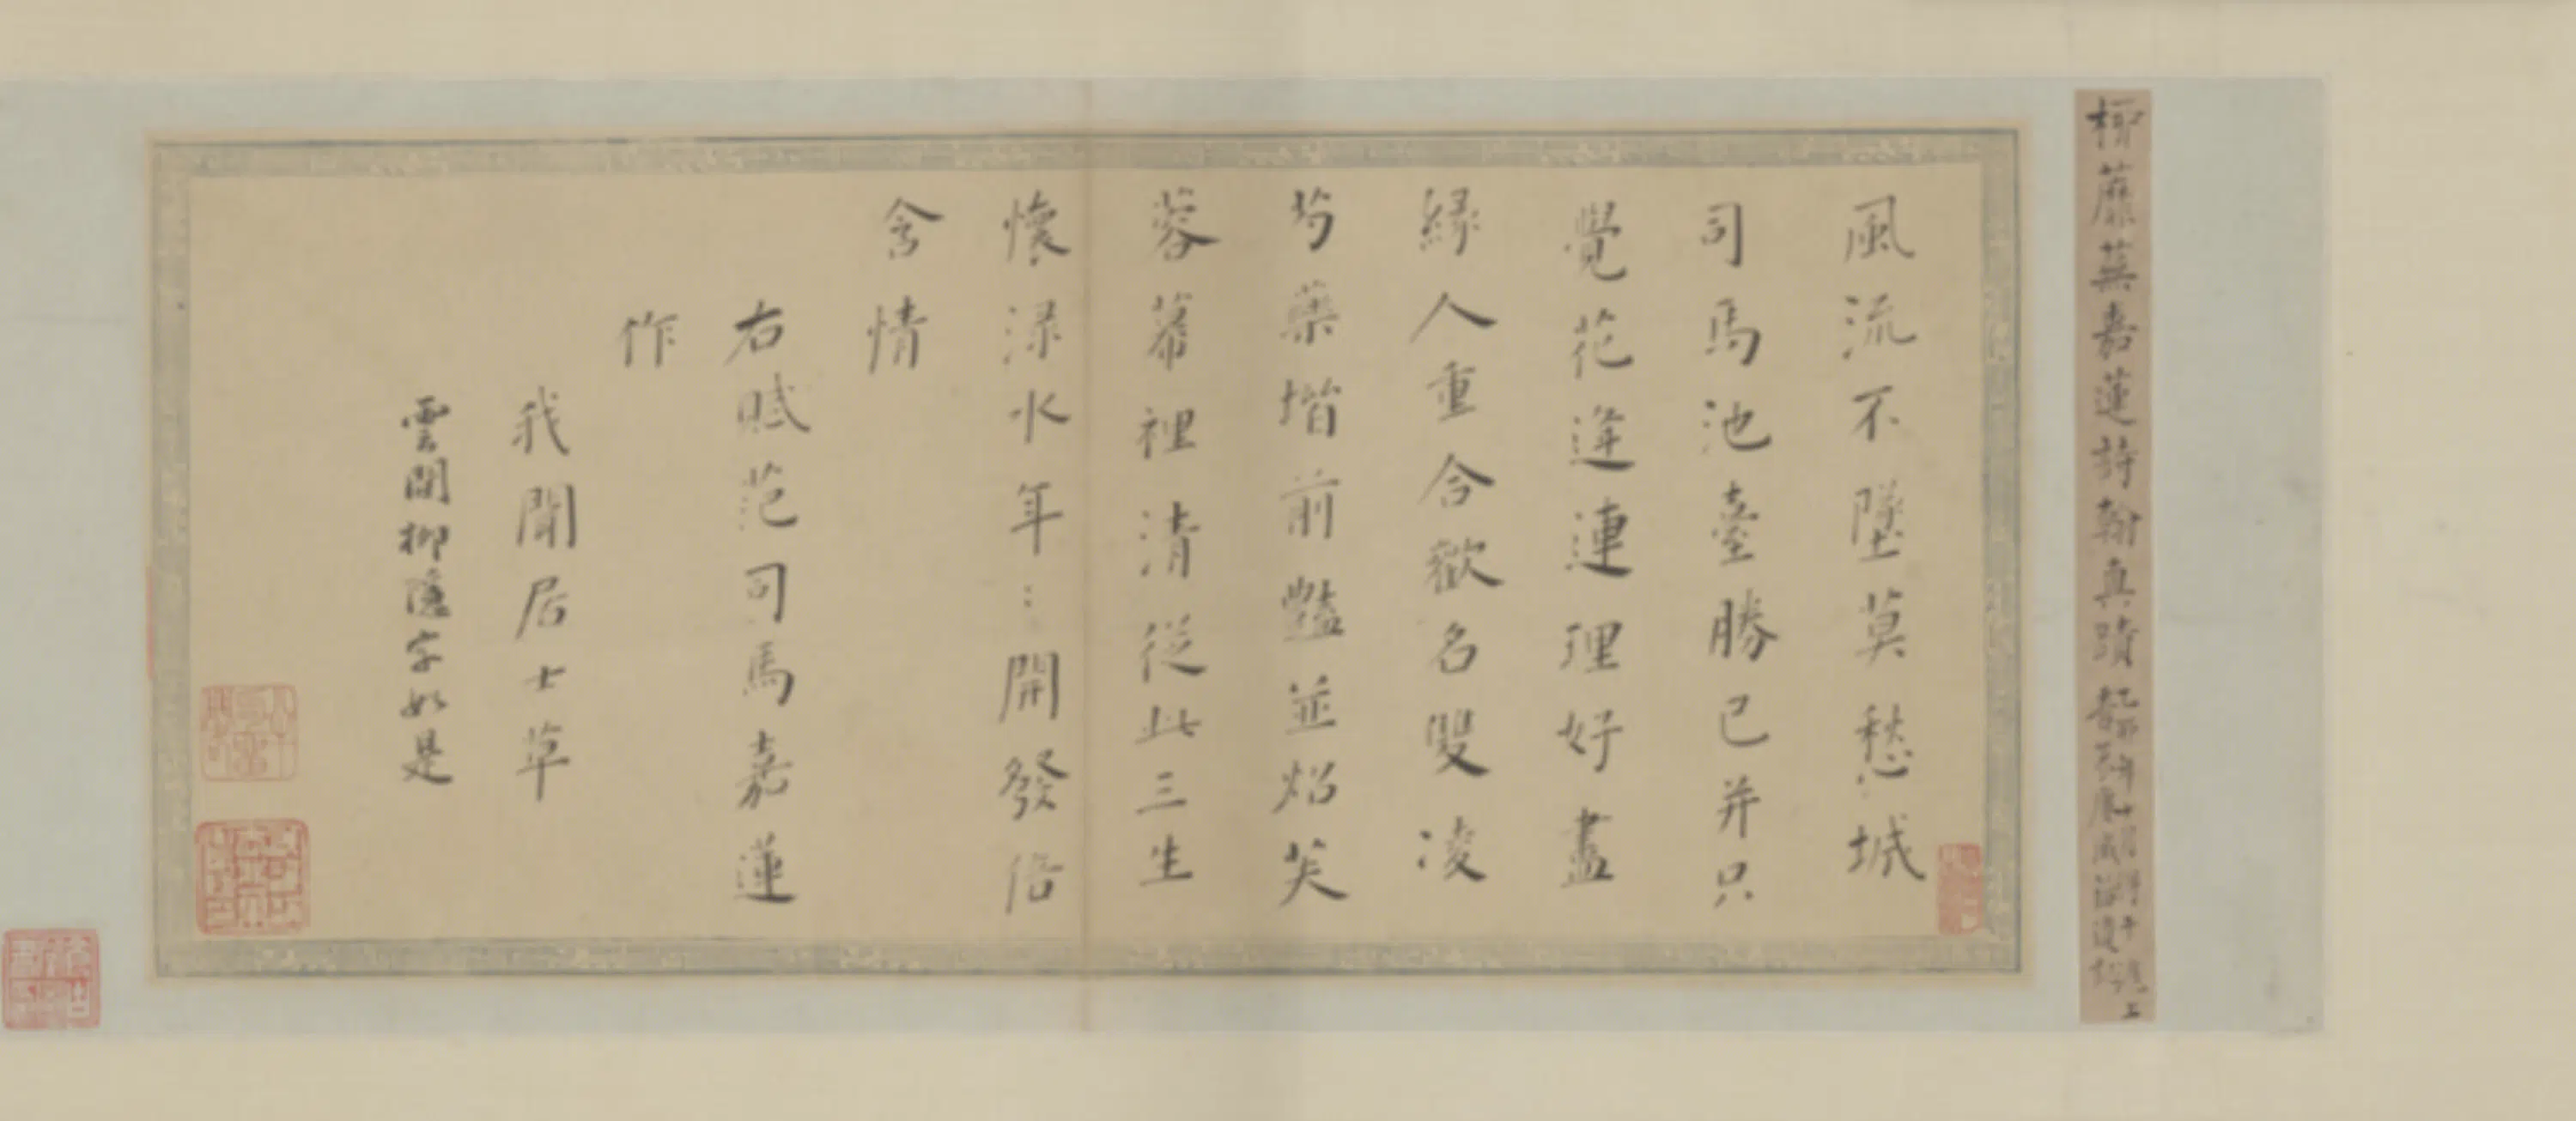 柳蘼蕪嘉蓮詩翰真蹟
風流不墜莫愁城
司馬池臺勝已并只
覺花逢連理好盡
緣人重合歡名雙凌
芍藥堦前豔並炤芙
蓉幕裡清從此三生
懷渌水年〻開發倍
含情
右賦范司馬嘉蓮
作
我聞居士草
雲間柳隱字如是